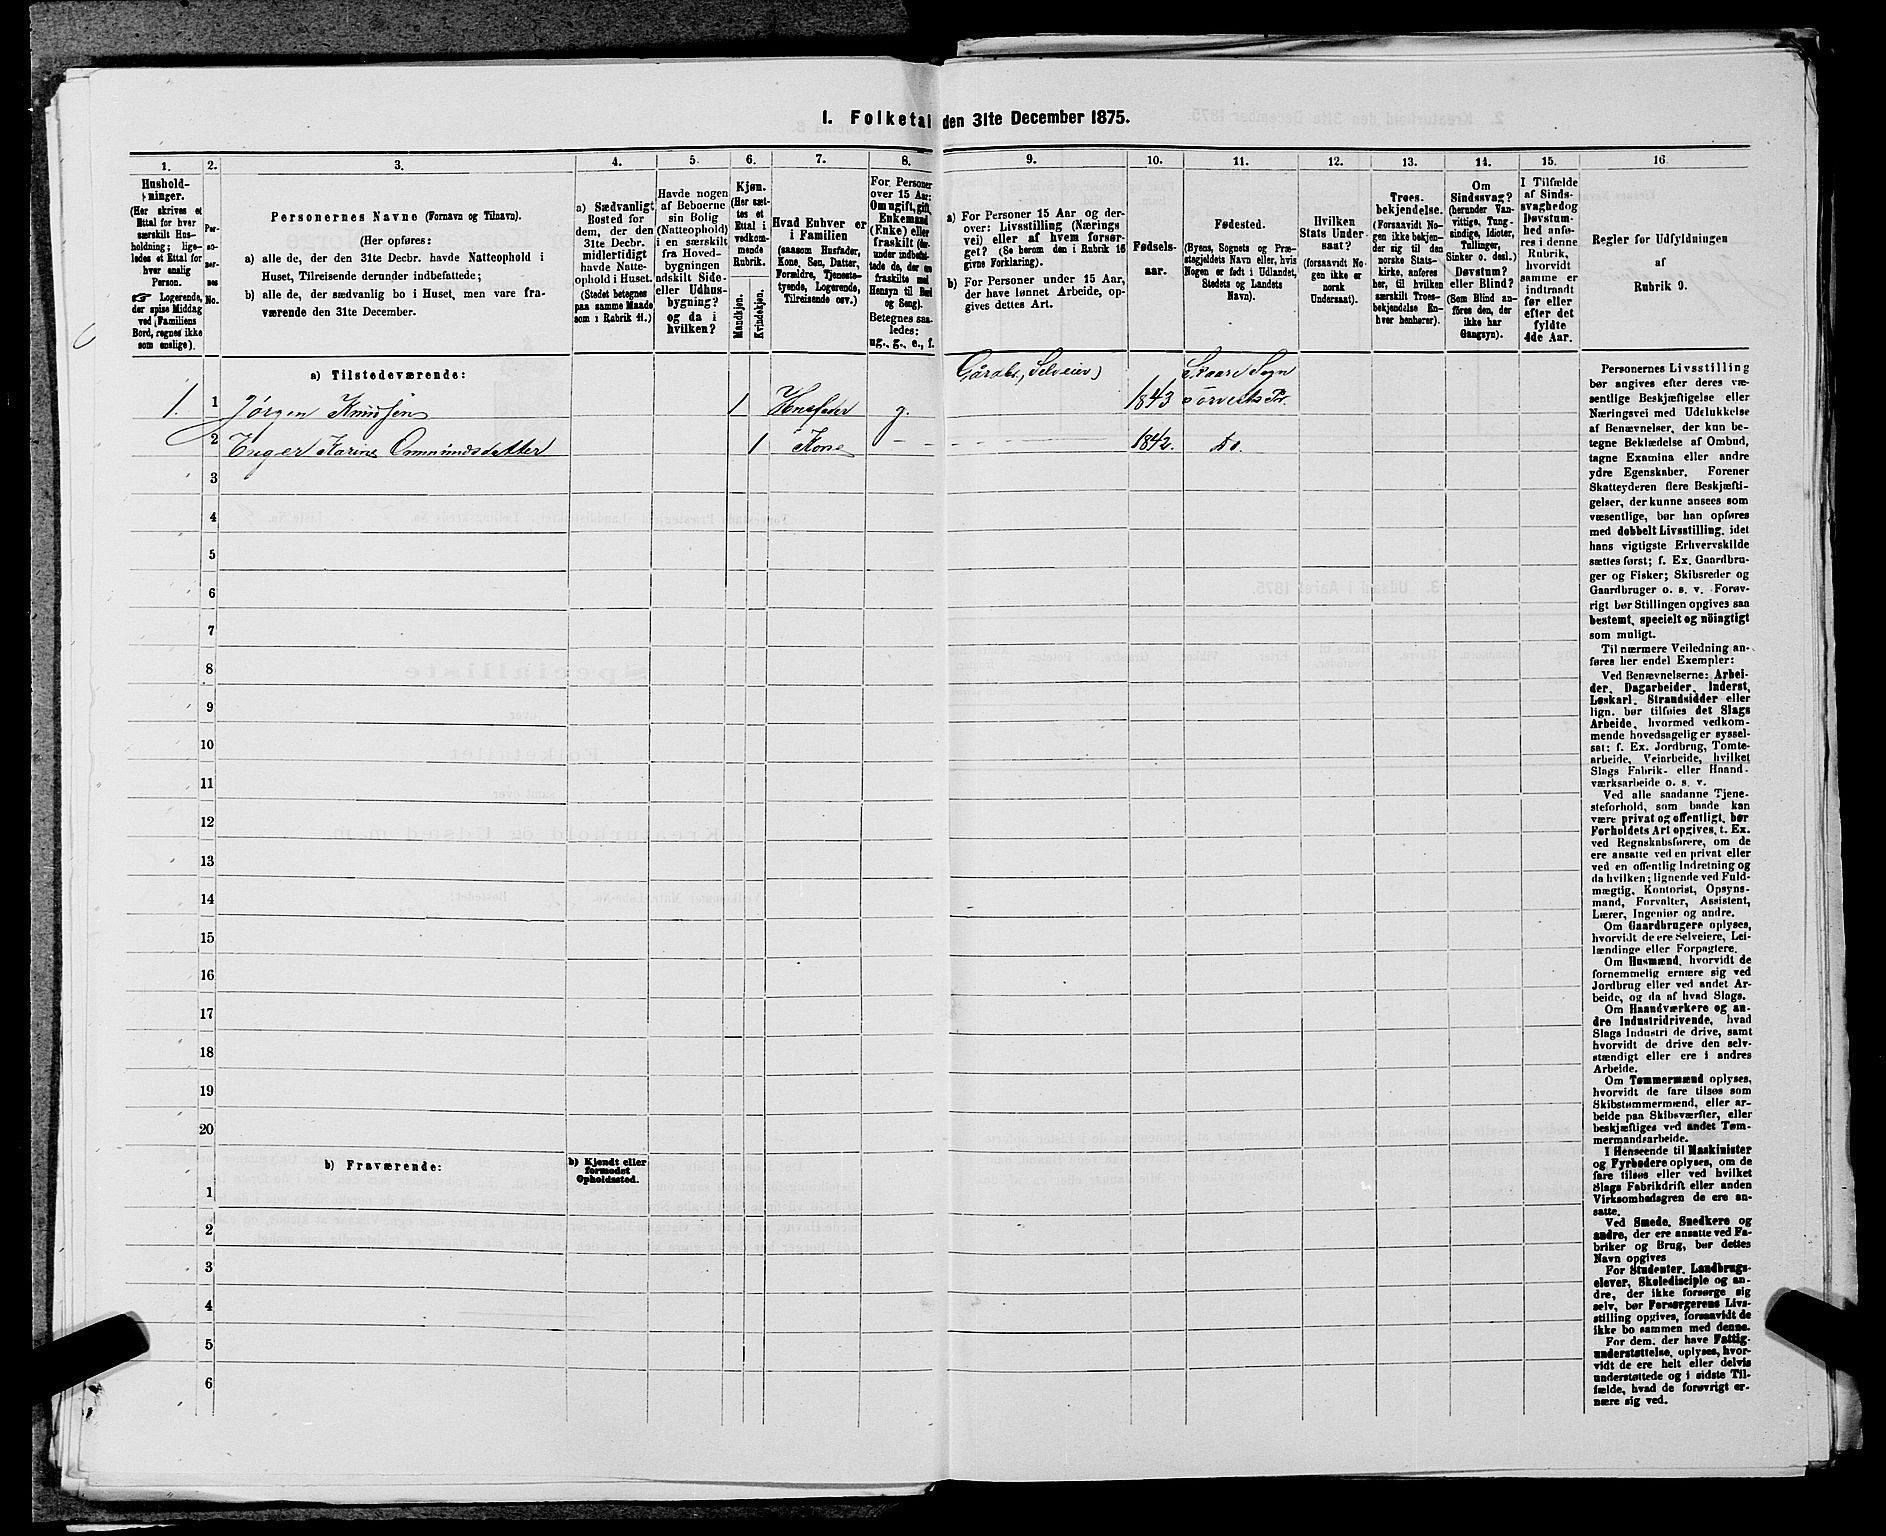 1. Folketal den 31te December 1875.
1.
2.
3.
4.
5.
6.
7.
8.
9.
10.
11.
12.
13.
14.
15.
16
Hushold-
ninger.
(Her skrives et
Ettal for hver
særskilt Hus-
holdning; lige-
ledes et Ettal for
hver enslig
Person.
☞ Logerende,
der spise Middag
ved Familiens
Bord, regnes ikke
som enslige).
Per-
so-
ner-
nes
No.
Personernes Navne (Fornavn og Tilnavn).
(Her opføres:
a) alle de, der den 31te Decbr. havde Natteophold i
Huset, Tilreisende derunder indbefattede;
b) alle de, der sædvanlig bo i Huset, men vare fra-
værende den 31te December.
a) Sædvanligt
Bosted for
dem, der den
31te Decbr.
midlertidigt
havde Natte-
ophold i Huset.
(Stedet betegnes
paa samme Maade
som i Rubrik 11.)
Havde nogen
af Beboerne
sin Bolig
(Natteophold)
i en særskilt
fra Hoved-
bygningen
adskilt Side-
eller Udhus-
bygning?
og da i
hvilken?
Kjøn.
(Her sæt-
tes et
Ettal i
vedkom-
mende
Rubrik.
Mandkjøn.
Kvindekjøn.
Hvad Enhver er
i Familien
(saasom Husfader,
Kone, Søn, Datter,
Forældre, Tjeneste-
tyende, Logerende,
Tilreisende osv.)
For Personer
over 15 Aar:
Om ugift, gift,
Enkemand
(Enke) eller
fraskilt (der-
under indbefat-
tede de, der ere
fraskilte med
Hensyn til Bord
og Seng).
Betegnes saa-
ledes:
ug., g., e., f.
a) For Personer 15 Aar og der-
over: Livsstilling (Nærings
vei) eller af hvem forsør-
get? (Se herom den i Rubrik 16
givne Forklaring).
b) For Personer under 15 Aar,
der have lønnet Arbeide, op-
gives dettes Art.
Fødsels-
aar.
Fødested.
(Byens, Sognets og Præ-
stegjeldets Navn eller, hvis
Nogen er født i Udlandet,
Stedets og Landets
Navn).
Hvilken
Stats Under-
saat?
(forsaavidt No-
gen ikke er
norsk
Undersaat).
Troes-
bekjendelse.
(Forsaavidt No-
gen ikke bekjen-
der sig til den
norske Stats-
kirke, anføres
her, til hvilken
særskilt Troes-
bekjendelse En-
hver henhører).
Om
Sindssvag?
(herunder Van-
vittige, Tung-
sindige, Idioter,
Tullinger,
Sinker o. desl.)
Døvstum?
eller Blind?
(Som Blind an-
føres den, der
ikke har
Gangsyn).
I Tilfælde
af Sinds-
svaghed og
Døvstum-
hed anfø-
res i denne
Rubrik,
hvorvidt
samme er
indtraadt
før eller
efter det
fyldte
4de Aar.
Regler for Udfyldningen
af
Rubrik 9.
a) Tilstedeværende:
Gårdbr, Selveier
Skaare Sogn
1. 1 Jørgen Knudsen 1 Husfader g. 1843 Torvests Pr.
2 Enger Karine Ommundsdatter 1 Kone - - 1842. do.
3
4
5
6
7
8
9
10
11
12
13
14
15
16
17
18
19
20
b) Fraværende:
b) Kjendt eller
formodet
Opholdssted.
1
2
3
4
5
6
Personernes Livsstilling
bør angives efter deres væ-
sentlige Beskjæftigelse eller
Næringsvei med Udelukkelse
af Benævnelser, der kun be-
tegne Beklædelse af Ombud,
tagne Examina eller andre
ydre Egenskaber. Forener
Skatteyderen flere Beskjæfti-
gelser, der kunne ansees som
væsentlige, bør han opføres
med dobbelt Livsstilling, idet
hans vigtigste Erhvervskilde
sættes først; f. Ex. Gaardbru-
ger og Fisker; Skibsreder og
Gaardbruger o. s. v. Forøv-
rigt bør Stillingen opgives saa
bestemt, specielt og nöingtigt
som muligt.
Til nærmere Veiledning an-
føres her endel Exempler:
Ved Benævnelserne: Arbei-
der, Dagarbeider, Inderst,
Løskarl, Strandsidder eller
lign. bør tilføies det Slags
Arbeide, hvormed vedkom-
mende hovedsagelig er syssel-
sat; f. Ex. Jordbrug, Tomte-
arbeide, Veiarbeide, hvilket
Slags Fabrik- eller Haand-
værksarbeide o. s. v.
Ved alle saadanne Tjene-
steforhold, som baade kan
være privat og offentligt, bør
Forholdets Art opgives, t. Ex.
ved Regnskabsførere, om de
ere ansatte ved en privat eller
ved en offentlig Indretning og
da hvilken; lignende ved Fuld-
mægtig, Kontorist, Opsyns-
mand, Forvalter, Assistent,
Lærer, Ingeniør og andre.
Om Gaardbrugere oplyses,
hvorvidt de ere Selveiere, Lei-
lændinge eller Forpagtere.
Om Husmænd, hvorvidt de
fornemmelig ernære sig ved
Jordbrug eller ved andet Ar-
beide, og da af hvad Slags.
Om Haandværkere og an-
dre Industridrivende, hvad
Slags Industri de drive, samt
hvorvidt de drive den selv-
stændigt eller ere i andres
Arbeide.
Om Tømmermænd oplyses,
hvorvidt de fare tilsøs som
Skibstømmermænd, eller ar-
beide paa Skibsværfter, eller
beskjæftiges ved andet Tøm-
mermandsarbeide.
I Henseende til Maskinister
og Fyrbødere oplyses, om de
fare tilsøs eller ved hvilket
Slags Fabrikdrift eller anden
Virksombedsgren de ere an-
satte.
Ved Smede, Snedkere og
andre, der ere ansatte ved Fa-
briker og Brug, bør dettes
Navn opgives
For Studenter, Landbrugs-
elever, Skoledisciple og an-
dre, der ikke forsørge sig
selv, bør Forsørgerens Livs-
stilling opgives, forsaavidt de
ikke bo sammen med denne.
For dem, der have Fattig-
understøttelse, oplyses, hvor-
vidt de ere helt eller delvis
understøttede og i sidste Til-
fælde, hvad de forøvrigt er-
nære sig ved.